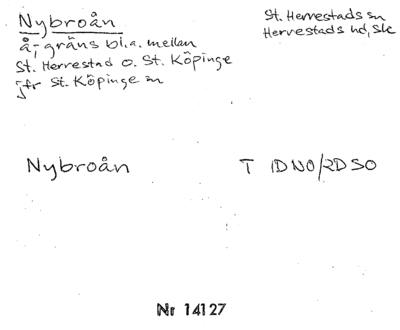 Nybroån
St. Herrestads sn
Herrestads hd, Sk
å; gräns bl.a. mellan
St. Herrestad o. St. Köpinge
jfr St. Köpinge sn
Nybroån T 1DNO/2DSO
Nr 14127